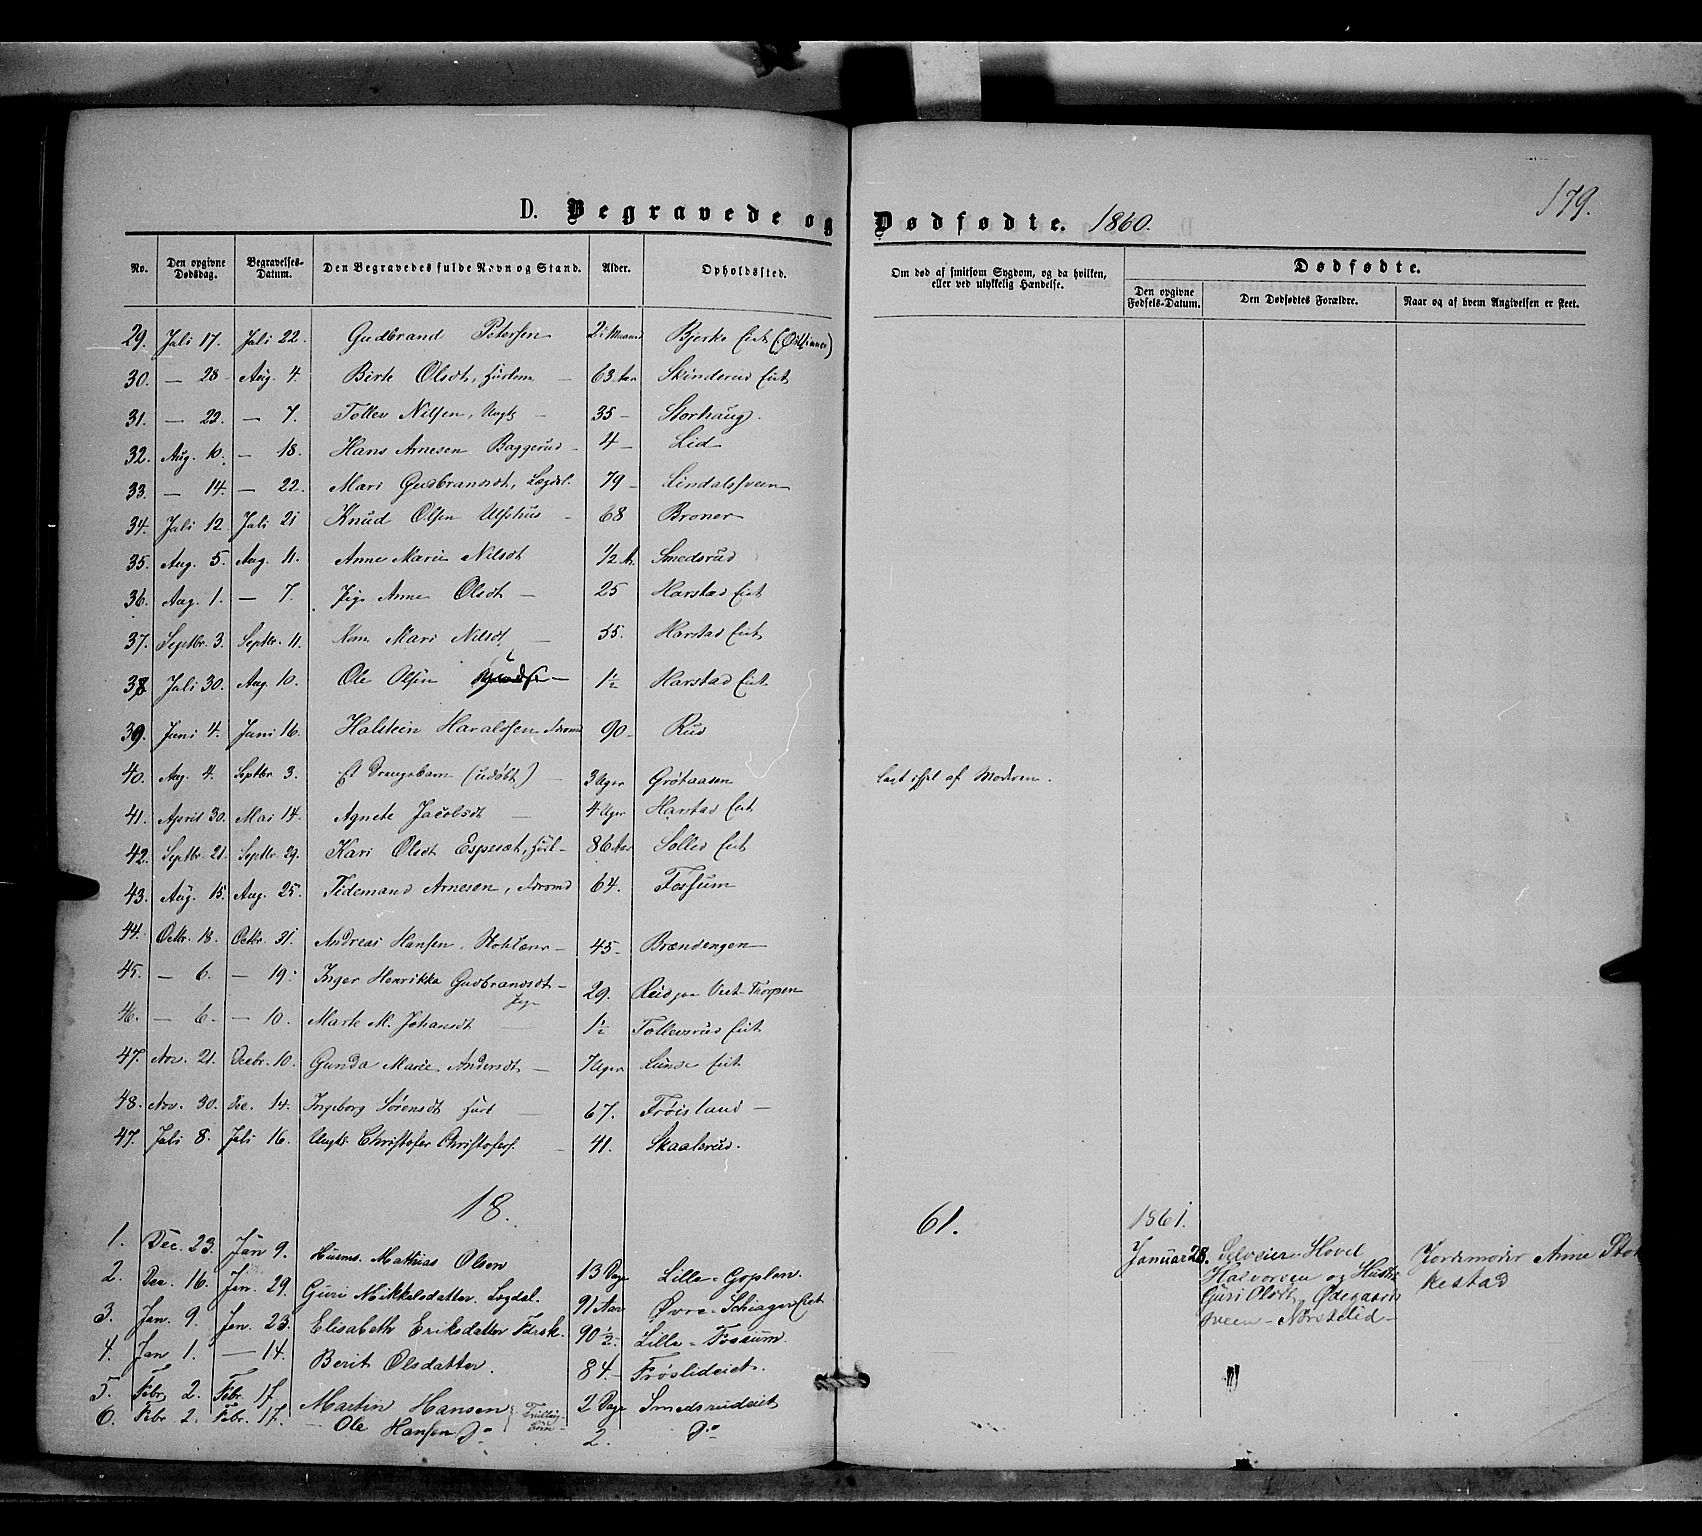 179.
D. Begravede og Dødfødte. 1860.
No. Den opgivne Dødsdag. Begravelses-Datum. Den Begravedes fulde Navn og Stand. Alder. Opholdssted. Om død af smitsom Sygdom, og da hvilken, eller ved ulykkelig Hændelse. Dødfødte.
Den opgivne Fødsels-Datum. Den Dødfødtes Forældre. Naar og af hvem Angivelsen er skeet.
29. Juli 17. Juli 22. Gudbrand Petersen 21 Maaned Bjerke Eiet
30. — 28 Aug. 4. Birte Olsdt, — 63 Aar Skinderud Eiet
31. — 22. — 7. Tollev Nilsen, Ungk — 35 — Storhaug.
32. Aug. 10. — 18. Hans Arnesen Baggerud — 4 — Lid
33. — 14. — 22. Mari Gudbrandsdt, Lægdsl. 79 — Lindalsveen
34. Juli 12. Juli 21 Knud Olsen Ulfshus — 68 Broner
35. Aug. 5. Aug. 11. Anne Marie Nilsdt 1/2 A. Smedsrud
36. Aug. 1. — 7. Pige Anne Olsdt — 25 Harstad Eiet
37. Septbr. 3. Septbr. 11. Kone Mari Nilsdt, — 55. Harstad Eiet
38 Juli 30. Aug. 10. Ole Olsen — 1½ Harstad Eiet
39. Juni 4. Juni 16. Halstein Haraldsen 90 — Rud
40. Aug. 4. Septbr 3. Et Drengebarn (udøbt) — 3 Uger Grøtaasen af Moderen.
41. April 30. Mai 14. Agnete Jacobsdt — 4 Uger Harstad Eiet
42. Septbr. 21. Septbr. 29. Kari Olsdt Espeset, — 86 Aar Sollid Eiet
43. Aug. 15. Aug. 25. Tidemand Arnesen, 64. Fossum
44. Octbr. 18. Octbr. 31. Andreas Hansen, — 45 — Brændengen
45. — 6. — 19. Inger Henrikka Gudbrandsdt —
Pige 29. Vest-Thorpen
46. — 6 — — 10. Marte M. Johansdt — 1½ Tollevsrud Eiet
47. Nov. 21. Decbr. 10. Gunda Marie Andersdt — 7 Uger Lunde Eiet
48. Nov. 30. Dec. 14. Ingeborg Sørensdt — 67. Frøisland —
47. Juli 8. Juli 16. Ungk. Christofer Christofers. — 41. Skaalsrud.
18. 61. 1861.
1. Dec. 23. Jan 9. Huusm. Mathias Olsen 13 Dage Lille-Goplen.
2. Dec. 16. Jan. 29. Guri Mikkelsdatter. Lægdsl. 91 Aar Øvre-Schiager Eiet
3. Jan. 9. Jan. 23. Elisabeth Eriksdatter 90 1/2 — Lille-Fossum.
4. Jan 1. — 14. Berit Olsdatter. 84. — Frøslideiet.
5. Febr. 2. Febr. 17. Martin Hansen Tvilling- 2 Dage Smedsrudeiet
6. Febr 2. Febr. 17. — Ole Hansen Do børn 2. Do
Januar 28. Selveier Hovel Jordemoder Anne Stok
Halvorsen og Hustr. kestad
Guri Olsdt, Ødegaards
hveen — Nordre Lid —